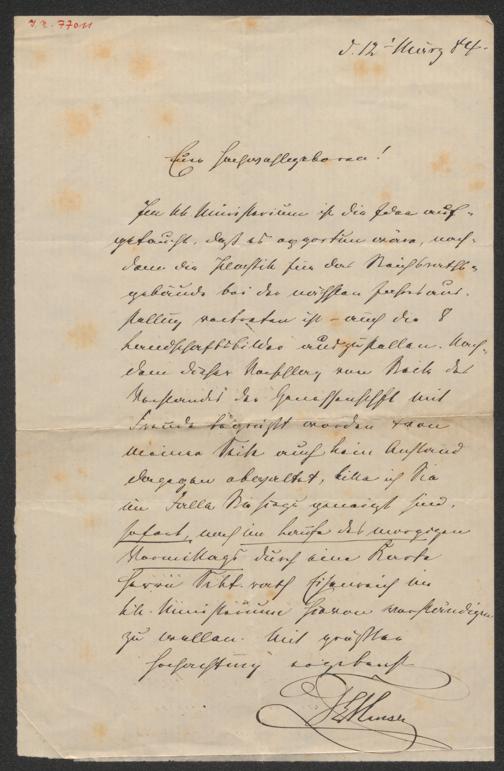 I.N. 77011
d. 12t März 84.
Euer Hochwohlgeboren!
Im kk Ministerium ist die Idee auf-
getaucht, daß es opportun wäre, nach-
dem die Plastik für das Reichsraths-
gebäude bei der nächsten Jahresaus-
stellung vertreten ist – auch die 8
Landschaftsbilder auszustellen. Nach-
dem dieser Vorschlag von Seite des
Vorstandes der Genossenschft mit
Freude begrüßt worden & von
meiner Seite auch kein Anstand
dagegen obwaltet, bitte ich Sie
im Falle Sie hiezu geneigt sind,
sofort, noch im Laufe des morgigen
Vormittags durch eine Karte
Herrn Sekt. rath Eisenreich im
kk. Ministerium hievon verständigen
zu wollen. Mit größter
Hochachtung ergebenst